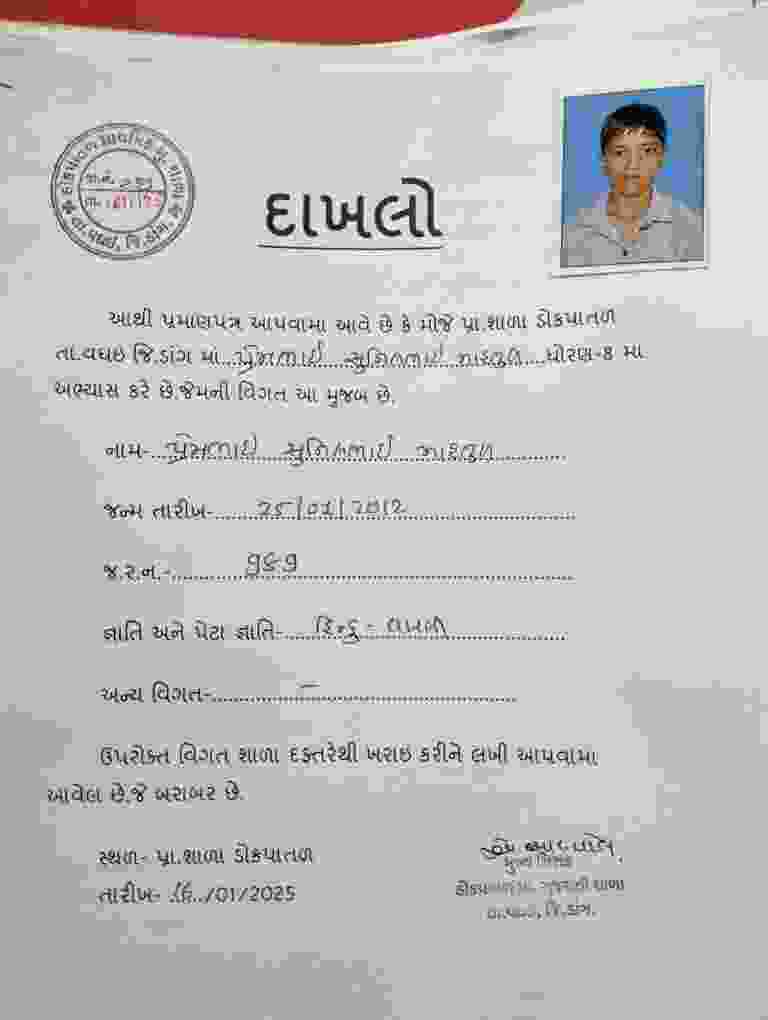 દાખલો
આથી પ્રમાણપત્ર આપવામા આવે છે કે મોજે પ્રા.શાળા ડોકપાતળ
તા.વઘઇ જિ.ડાંગ માં પ્રેમભાઈ સુનિલભાઈ ધોરણ-8 મા
અભ્યાસ કરે છે.જેમની વિગત આ મુજબ છે.
નામ- પ્રેમભાઈ સુનિલભાઈ
જન્મ તારીખ- 25/01/2012
જ.ર.ન.- ૧૬૧
જ્ઞાતિ અને પેટા જ્ઞાતિ- હિન્દુ -
અન્ય વિગત- –
ઉપરોક્ત વિગત શાળા દફ્તરેથી ખરાઇ કરીને લખી આપવામા
આવેલ છે.જે બરાબર છે.
સ્થળ- પ્રા.શાળા ડોકપાતળ
તારીખ- 16/01/2025
મુખ્ય શિક્ષક
ગુજરાતી શાળા
તા.વઘઇ, જિ.ડાંગ.